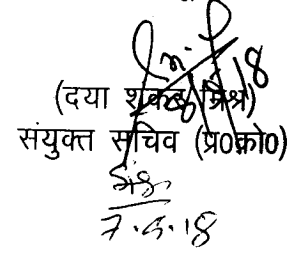 (दया शंकर मिश्र)
संयुक्त सचिव (प्र0को0)
7.6.18